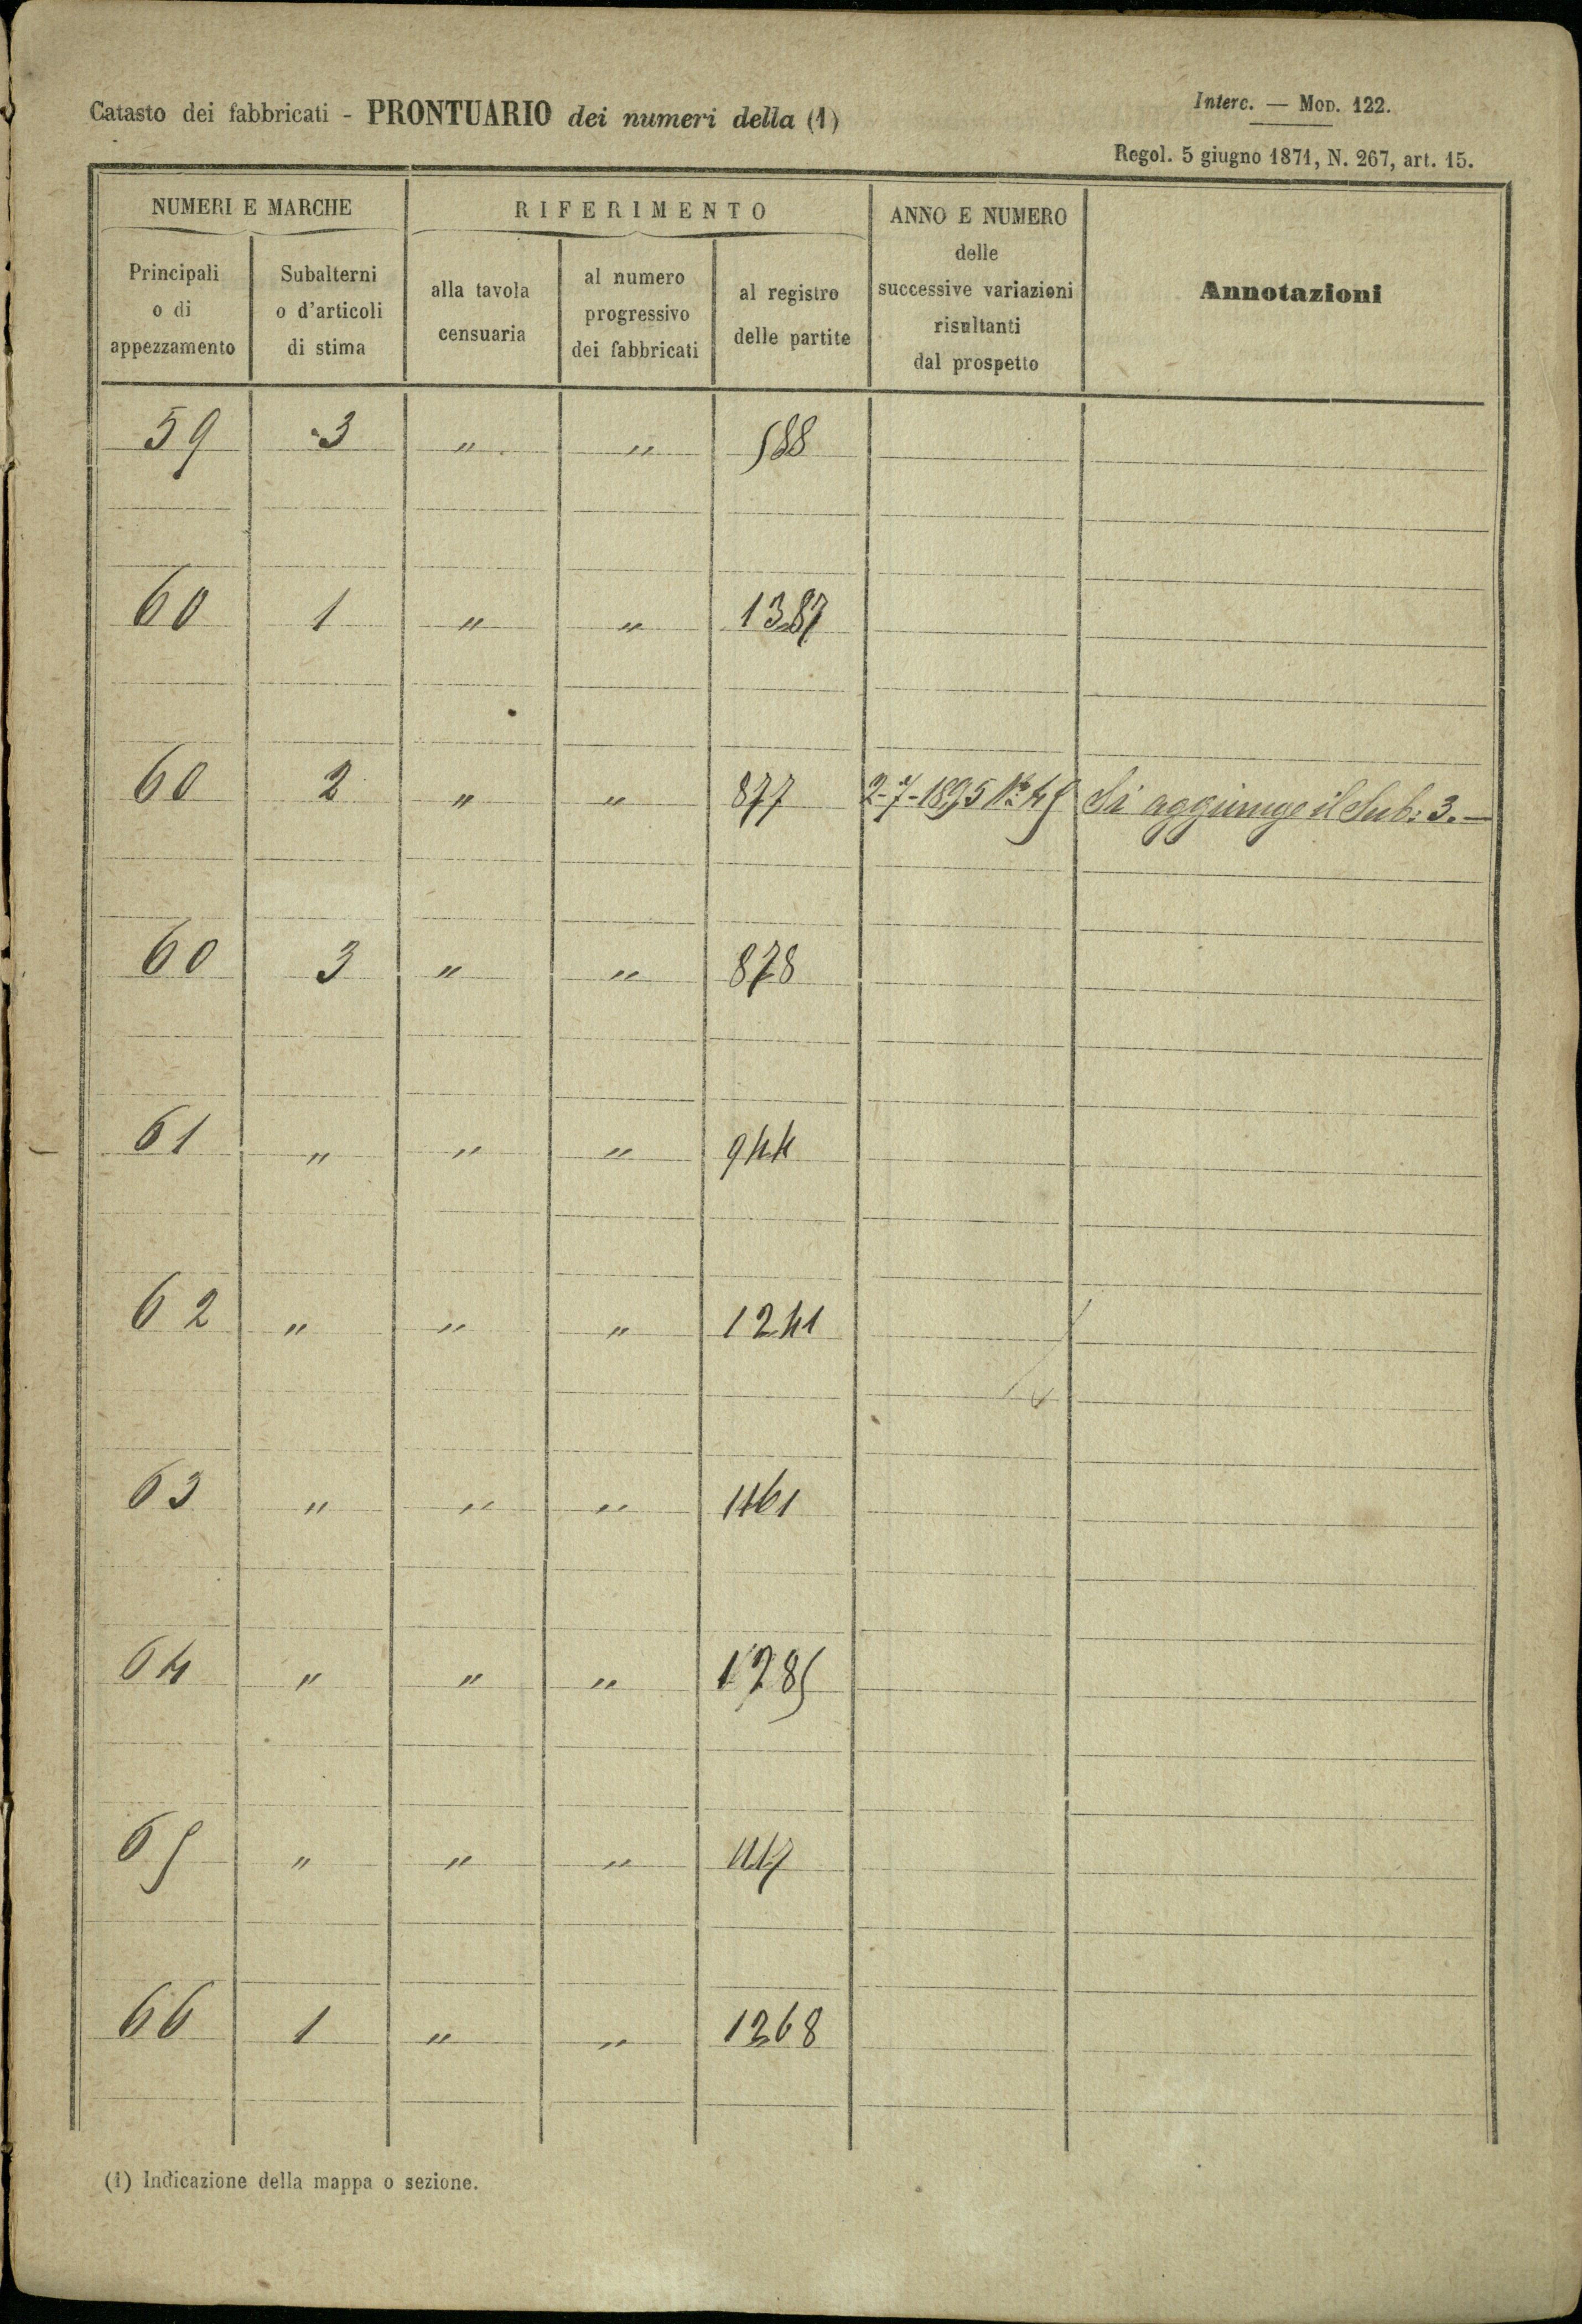 Catasto dei fabbricati - PRONTUARIO dei numeri della (1)
Interc. — Mod. 122.
Regol. 5 giugno 1871, N. 267, art. 15.
NUMERI E MARCHE
Principali o di appezzamento
Subalterni o d'articoli di stima
RIFERIMENTO
alla tavola censuaria
al numero progressivo dei fabbricati
al registro delle partite
ANNO E NUMERO delle successive variazioni risultanti dal prospetto
Annotazioni
59 3 " " 588
60 1 " " 1387
60 2 " " 877 2-7-1895 No 45 Si aggiunge il Sub: 3. —
60 3 " " 878
61 " " " 944
62 " " " 1241
63 " " " 1461
64 " " " 1285
65 " " " 1117
66 1 " " 1268
(1) Indicazione della mappa o sezione.